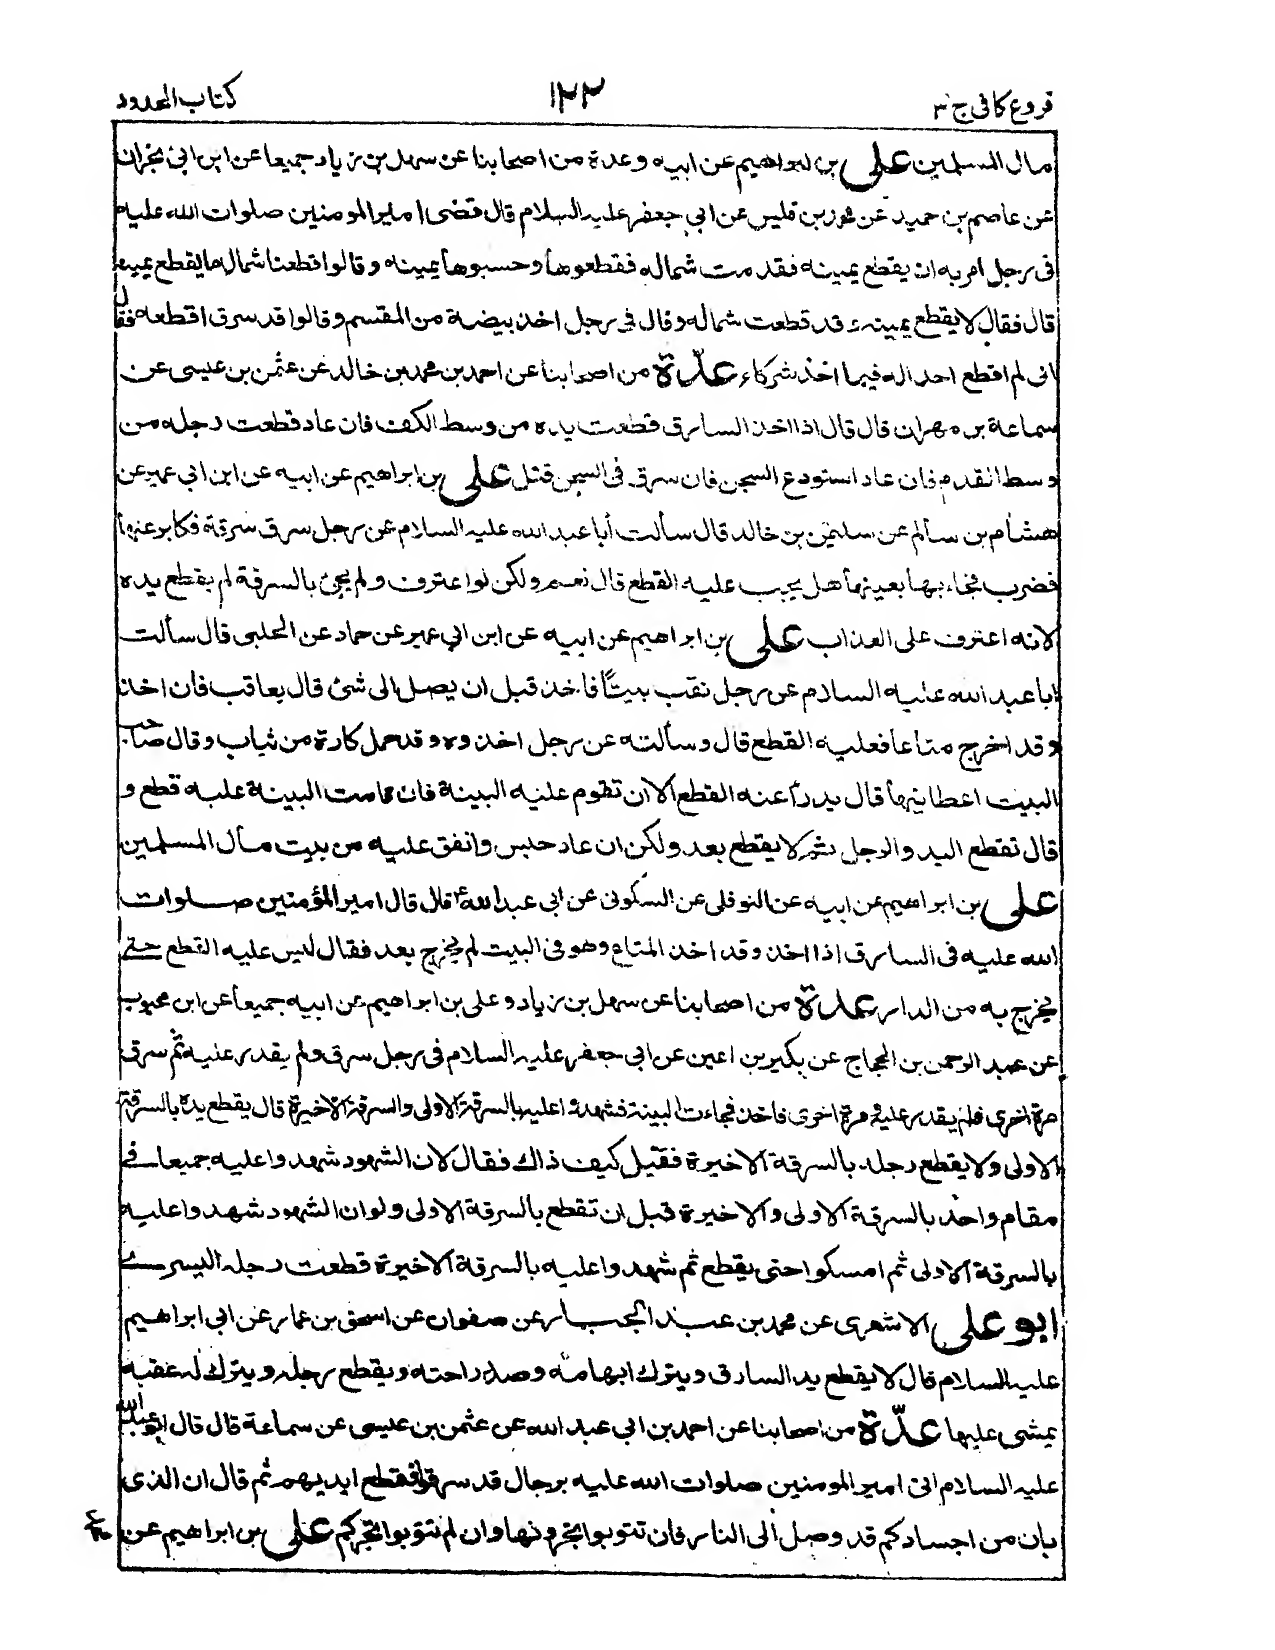 فروع كافى ج ٣
١٢٢
كتاب الحدود
مال المسلمين على بن ابراهيم عن ابيه وعدة من اصحابنا عن سهل بن زياد جميعا عن ابن ابى نجران
عن عاصم بن حميد عن محمد بن قيس عن ابى جعفر عليه السلام قال قضى امير المومنين صلوات الله عليه
فى رجل امر به ان يقطع يمينه فقدمت شماله فقطعوها وحسبوها يمينه وقالوا قطعنا شماله ايقطع يمينه
قال فقال لا يقطع يمينه وقد قطعت شماله وقال فى رجل اخذ بيضة من المقسم وقالوا قد سرق اقطعه فقال
انى لم اقطع احدا له فيما اخذ شركاء عدّة من اصحابنا عن احمد بن محمد بن خالد عن عثمن بن عيسى عن
سماعة بن مهران قال قال اذا اخذ السارق قطعت يده من وسط الكف فان عاد قطعت رجله من
وسط القدم فان عاد استودع السجن فان سرق فى السجن قتل على بن ابراهيم عن ابيه عن ابن ابى عمير عن
هشام بن سالم عن سليمن بن خالد قال سألت أبا عبد الله عليه السلام عن رجل سرق سرقة فكابر عنها
فضرب فجاء بها بعينها هل يجب عليه القطع قال نعم ولكن لو اعترف ولم يجئ بالسرقة لم يقطع يده
لانه اعترف على العذاب على بن ابراهيم عن ابيه عن ابن ابى عمير عن حماد عن الحلبى قال سألت
ابا عبد الله عليه السلام عن رجل نقب بيتًا فاخذ قبل ان يصل الى شئ قال يعاقب فان اخذ
وقد اخرج متاعا فعليه القطع قال وسألته عن رجل اخذوه وقد حمل كارة من ثياب وقال صاحب
البيت اعطانيها قال يدرأ عنه القطع الا ان تقوم عليه البينة فان قامت البينة عليه قطع و
قال تقطع اليد والرجل ثم لا يقطع بعد ولكن ان عاد حبس وانفق عليه من بيت مال المسلمين
على بن ابراهيم عن ابيه عن النوفلى عن السكونى عن ابى عبد الله ع قال قال امير المؤمنين صلوات
الله عليه فى السارق اذا اخذ وقد اخذ المتاع وهو فى البيت لم يخرج بعد فقال ليس عليه القطع حتى
يخرج به من الدار عدة من اصحابنا عن سهل بن زياد وعلى بن ابراهيم عن ابيه جميعا عن ابن محبوب
عن عبد الرحمن بن الحجاج عن بكير بن اعين عن ابى جعفر عليه السلام فى رجل سرق ولم يقدر عليه ثم سرق
مرة اخرى فلم يقدر عليه مرة اخرى فاخذ فجاءت البينة فشهدوا عليها بالسرقة الاولى والسرقة الاخيرة قال يقطع يده بالسرقة
الاولى ولا يقطع رجله بالسرقة الاخيرة فقيل كيف ذاك فقال لان الشهود شهدوا عليه جميعا فى
مقام واحد بالسرقة الاولى والاخيرة قبل ان تقطع بالسرقة الاولى ولو ان الشهود شهدوا عليه
بالسرقة الاولى ثم امسكوا حتى يقطع ثم شهدوا عليه بالسرقة الاخيرة قطعت رجله اليسرى
ابو على الاشعرى عن محمد بن عبد الجبار عن صفوان عن اسحق بن عمار عن ابى ابراهيم
عليه السلام قال لا يقطع يد السارق ويترك ابهامه وصدر راحته ويقطع رجله ويترك له عقبه
يمشى عليها عدّة من اصحابنا عن احمد بن ابى عبد الله عن عثمن بن عيسى عن سماعة قال قال ابو عبد الله
عليه السلام اتى امير المومنين صلوات الله عليه برجال قد سرقوا فقطع ايديهم ثم قال ان الذى
بان من اجسادكم قد وصل الى النار فان تتوبوا تجرونها وان لم تتوبوا تجركم على بن ابراهيم عن